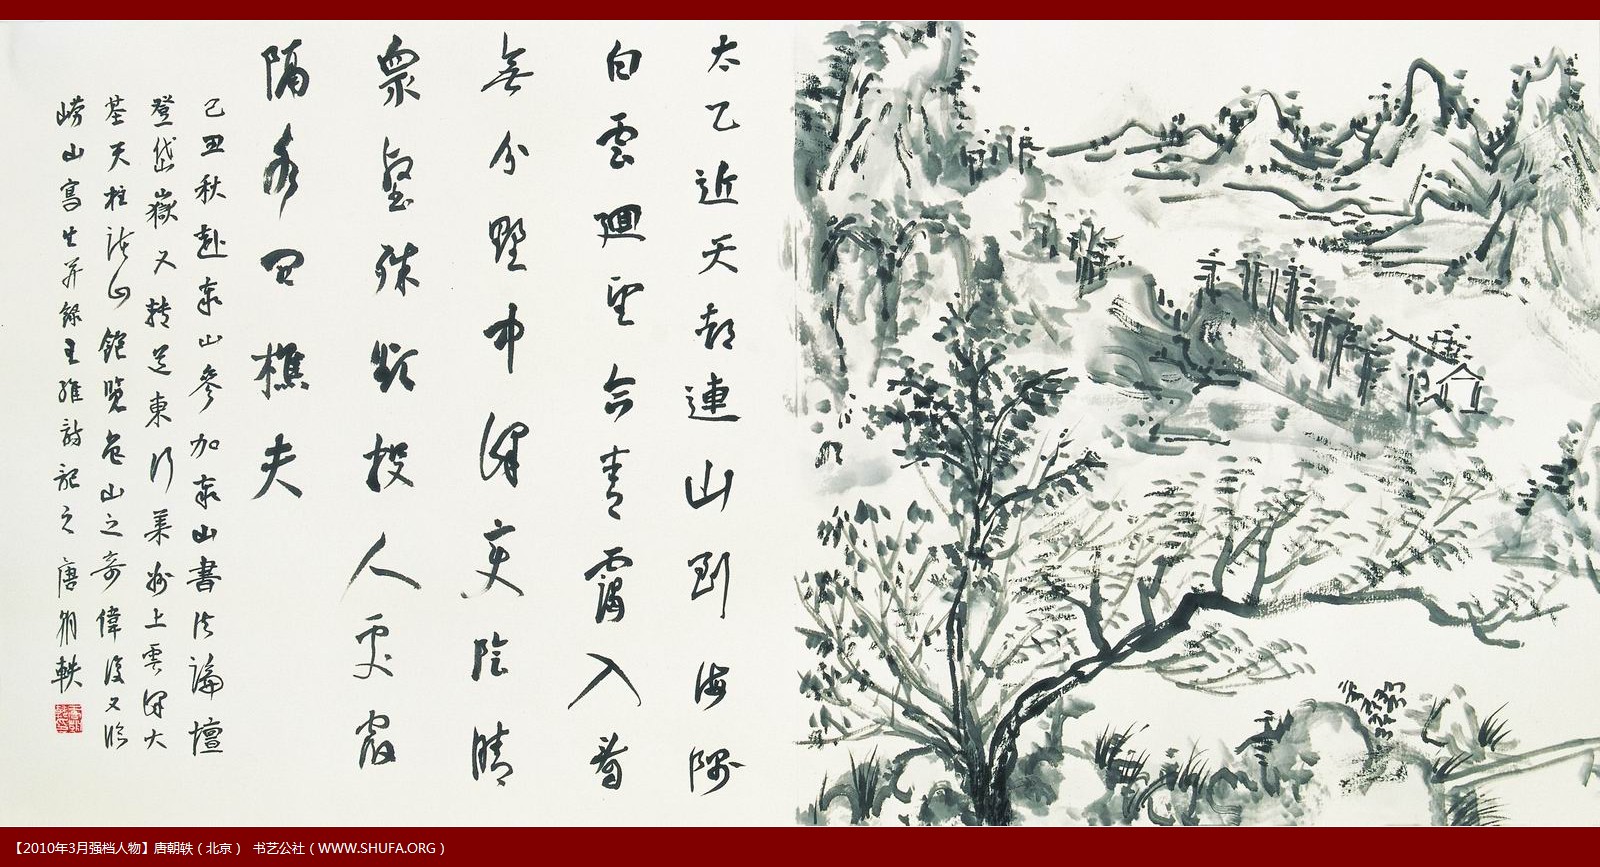 太乙近天都連山到海隅
白雲迴望合青靄入看
無分野中峰變陰晴
衆壑殊欲投人處宿
隔水問樵夫
己丑秋赴泰山參加泰山書法論壇
登岱嶽又轉道東行萊州上雲峰大
基天柱諸山飽覽名山之奇偉後又臨
嶗山寫生并錄王維詩記之唐朝軼
【2010年3月强档人物】唐朝轶（北京） 书艺公社（WWW.SHUFA.ORG）